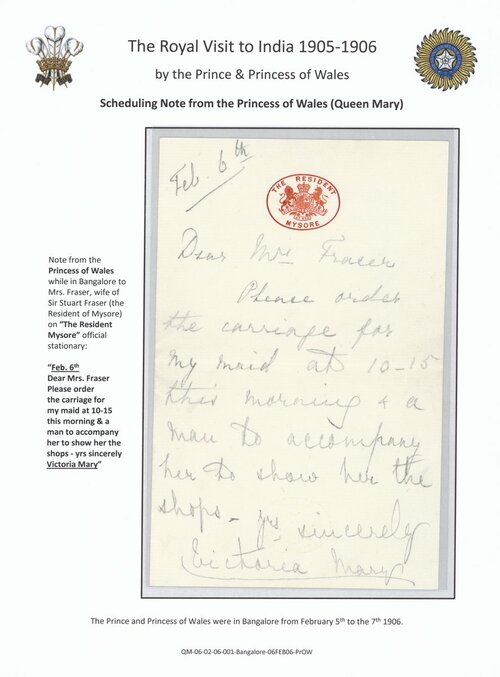 The Royal Visit to India 1905-1906
by the Prince & Princess of Wales
Scheduling Note from the Princess of Wales (Queen Mary)
Note from the
Princess of Wales
while in Bangalore to
Mrs. Fraser, wife of
Sir Stuart Fraser (the
Resident of Mysore)
on "The Resident
Mysore" official
stationary:
"Feb. 6th
Dear Mrs. Fraser
Please order
the carriage for
my maid at 10-15
this morning & a
man to accompany
her to show her the
shops - yrs sincerely
Victoria Mary"
Feb. 6th
THE RESIDENT
MYSORE
Dear Mrs Fraser
Please order
the carriage for
my maid at 10-15
this morning & a
man to accompany
her to show her the
shops - yrs sincerely
Victoria Mary
The Prince and Princess of Wales were in Bangalore from February 5th to the 7th 1906.
QM-06-02-06-001-Bangalore-06FEB06-PrOW